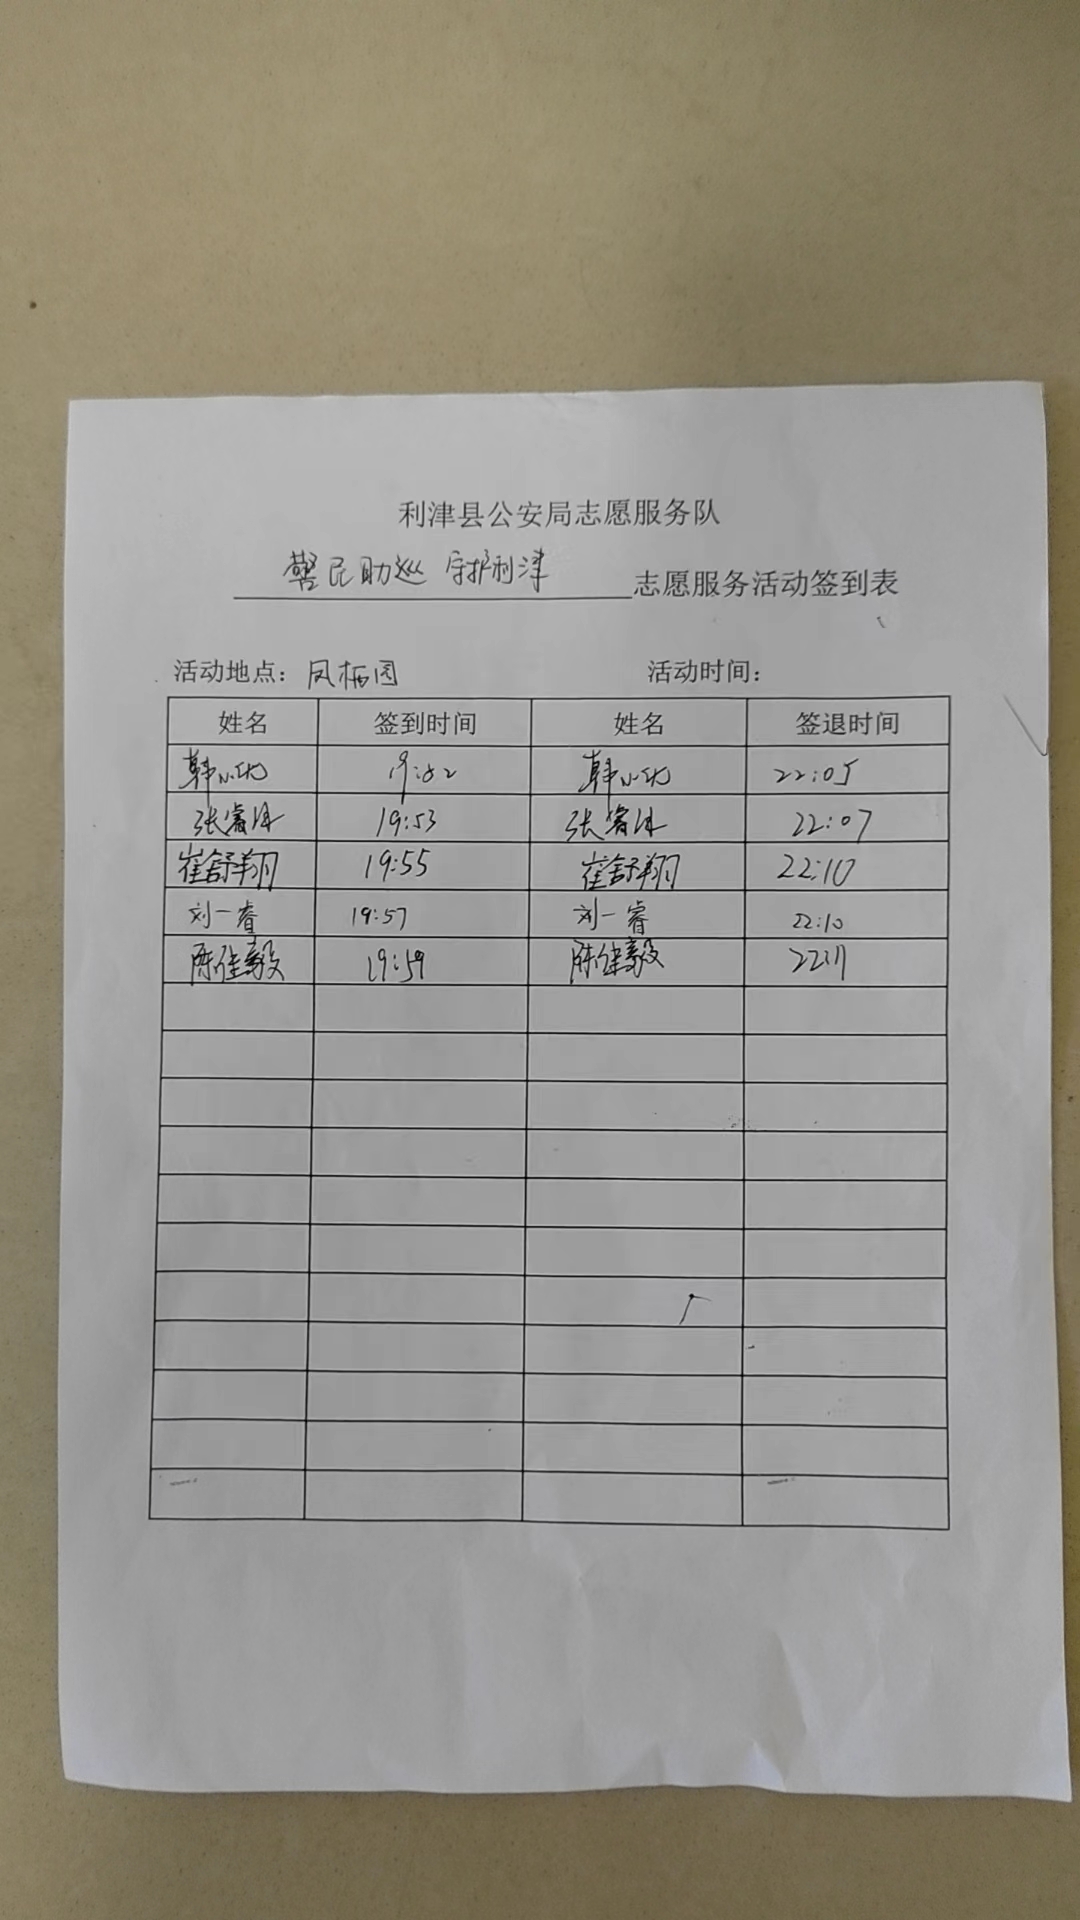 利津县公安局志愿服务队
警民助巡 守护利津 志愿服务活动签到表
活动地点：凤栖园 活动时间：
姓名 签到时间 姓名 签退时间
韩小优 韩小优 22:05
张睿泽 19:53 张睿泽 22:07
崔舒翔 19:55 崔舒翔 22:10
刘一睿 19:57 刘一睿 22:10
陈佳毅 19:59 陈健毅 22:11